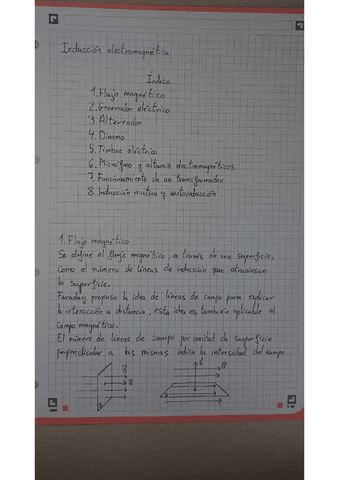 Inducción electromagnética
Índice
1. Flujo magnético
2. Generador eléctrico
3. Alternador
4. Dinamo
5. Timbre eléctrico
6. Micrófono y altavoz electromagnéticos
7. Funcionamiento de un transformador
8. Inducción mutua y autoinducción
1. Flujo magnético
Se define el flujo magnético, a través de una superficie,
como el número de líneas de inducción que atraviesan
la superficie.
Faraday propuso la idea de líneas de campo para explicar
la interacción a distancia; esta idea es también aplicable al
campo magnético.
El número de líneas de campo por unidad de superficie
perpendicular a las mismas indica la intensidad del campo